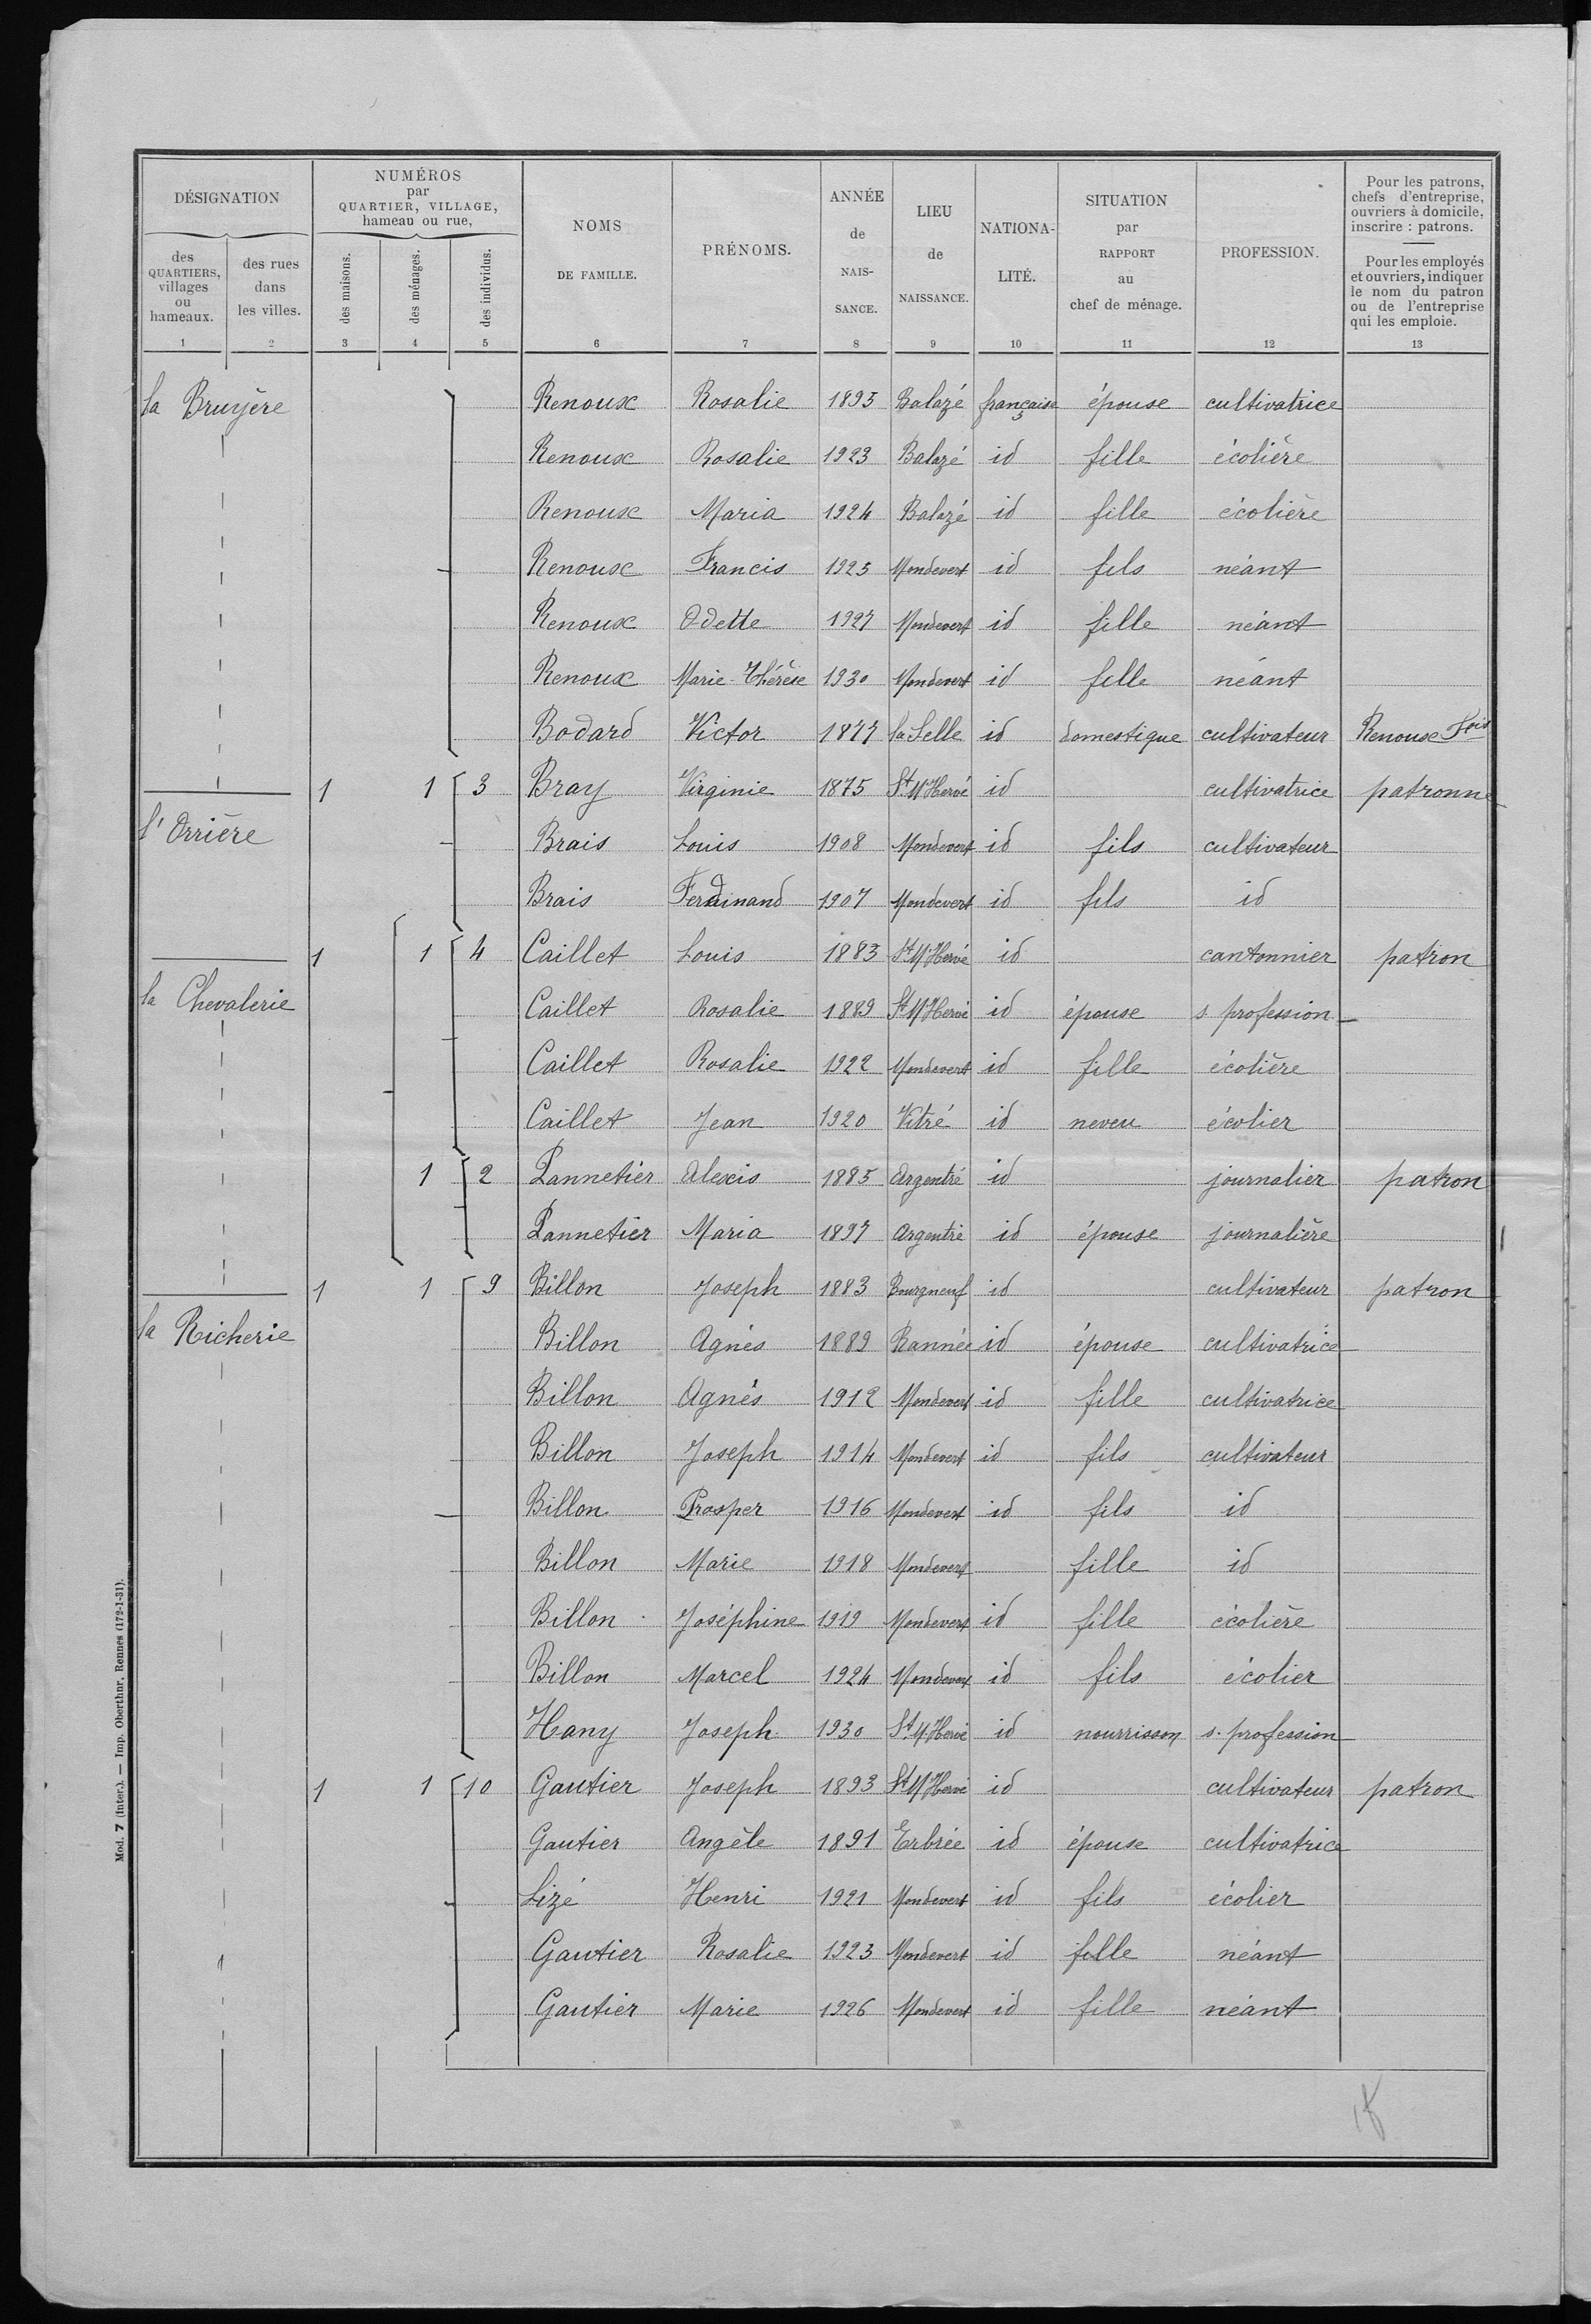 DÉSIGNATION
des QUARTIERS, villages ou hameaux.
des rues dans les villes.
NUMÉROS par QUARTIER, VILLAGE, hameau ou rue,
des maisons.
des ménages.
des individus.
NOMS DE FAMILLE.
PRÉNOMS.
ANNÉE de NAIS- SANCE.
LIEU de NAISSANCE.
NATIONA- LITÉ.
SITUATION par RAPPORT au chef de ménage.
PROFESSION.
Pour les patrons, chefs d'entreprise, ouvriers à domicile, inscrire : patrons.
Pour les employés et ouvriers, indiquer le nom du patron ou de l'entreprise qui les emploie.
1 2 3 4 5 6 7 8 9 10 11 12 13
la Bruyère Renoux Rosalie 1895 Balazé française épouse cultivatrice
Renoux Rosalie 1923 Balazé id fille écolière
Renoux Maria 1924 Balazé id fille écolière
Renoux Francis 1925 Mondevert id fils néant
Renoux Odette 1927 Mondevert id fille néant
Renoux Marie-Thérèse 1930 Mondevert id fille néant
Bodard Victor 1877 la Selle id domestique cultivateur Renoux Fois
1 1 3 Bray Virginie 1875 St M Hervé id cultivatrice patronne
l'Orrière Brais Louis 1908 Mondevert id fils cultivateur
Brais Ferdinand 1907 Mondevert id fils id
1 1 4 Caillet Louis 1883 St M Hervé id cantonnier patron
la Chevalerie Caillet Rosalie 1889 St M Hervé id épouse s. profession
Caillet Rosalie 1922 Mondevert id fille écolière
Caillet Jean 1920 Vitré id neveu écolier
1 2 Pannetier Alexis 1885 Argentré id journalier patron
Pannetier Maria 1897 Argentré id épouse journalière
1 1 9 Billon Joseph 1883 Bourgneuf id cultivateur patron
la Richerie Billon Agnès 1889 Rannée id épouse cultivatrice
Billon Agnès 1912 Mondevert id fille cultivatrice
Billon Joseph 1914 Mondevert id fils cultivateur
Billon Prosper 1916 Mondevert id fils id
Billon Marie 1918 Mondevert fille id
Billon Joséphine 1919 Mondevert id fille écolière
Billon Marcel 1924 Mondevert id fils écolier
Hany Joseph 1930 St M. Hervé id nourrisson s. profession
1 1 10 Gautier Joseph 1893 St M Hervé id cultivateur patron
Gautier Angèle 1891 Erbrée id épouse cultivatrice
Lizé Henri 1921 Mondevert id fils écolier
Gautier Rosalie 1923 Mondevert id fille néant
Gautier Marie 1926 Mondevert id fille néant
Mod. 7 (Inter.). — Imp. Oberthur, Rennes (172-1-31).